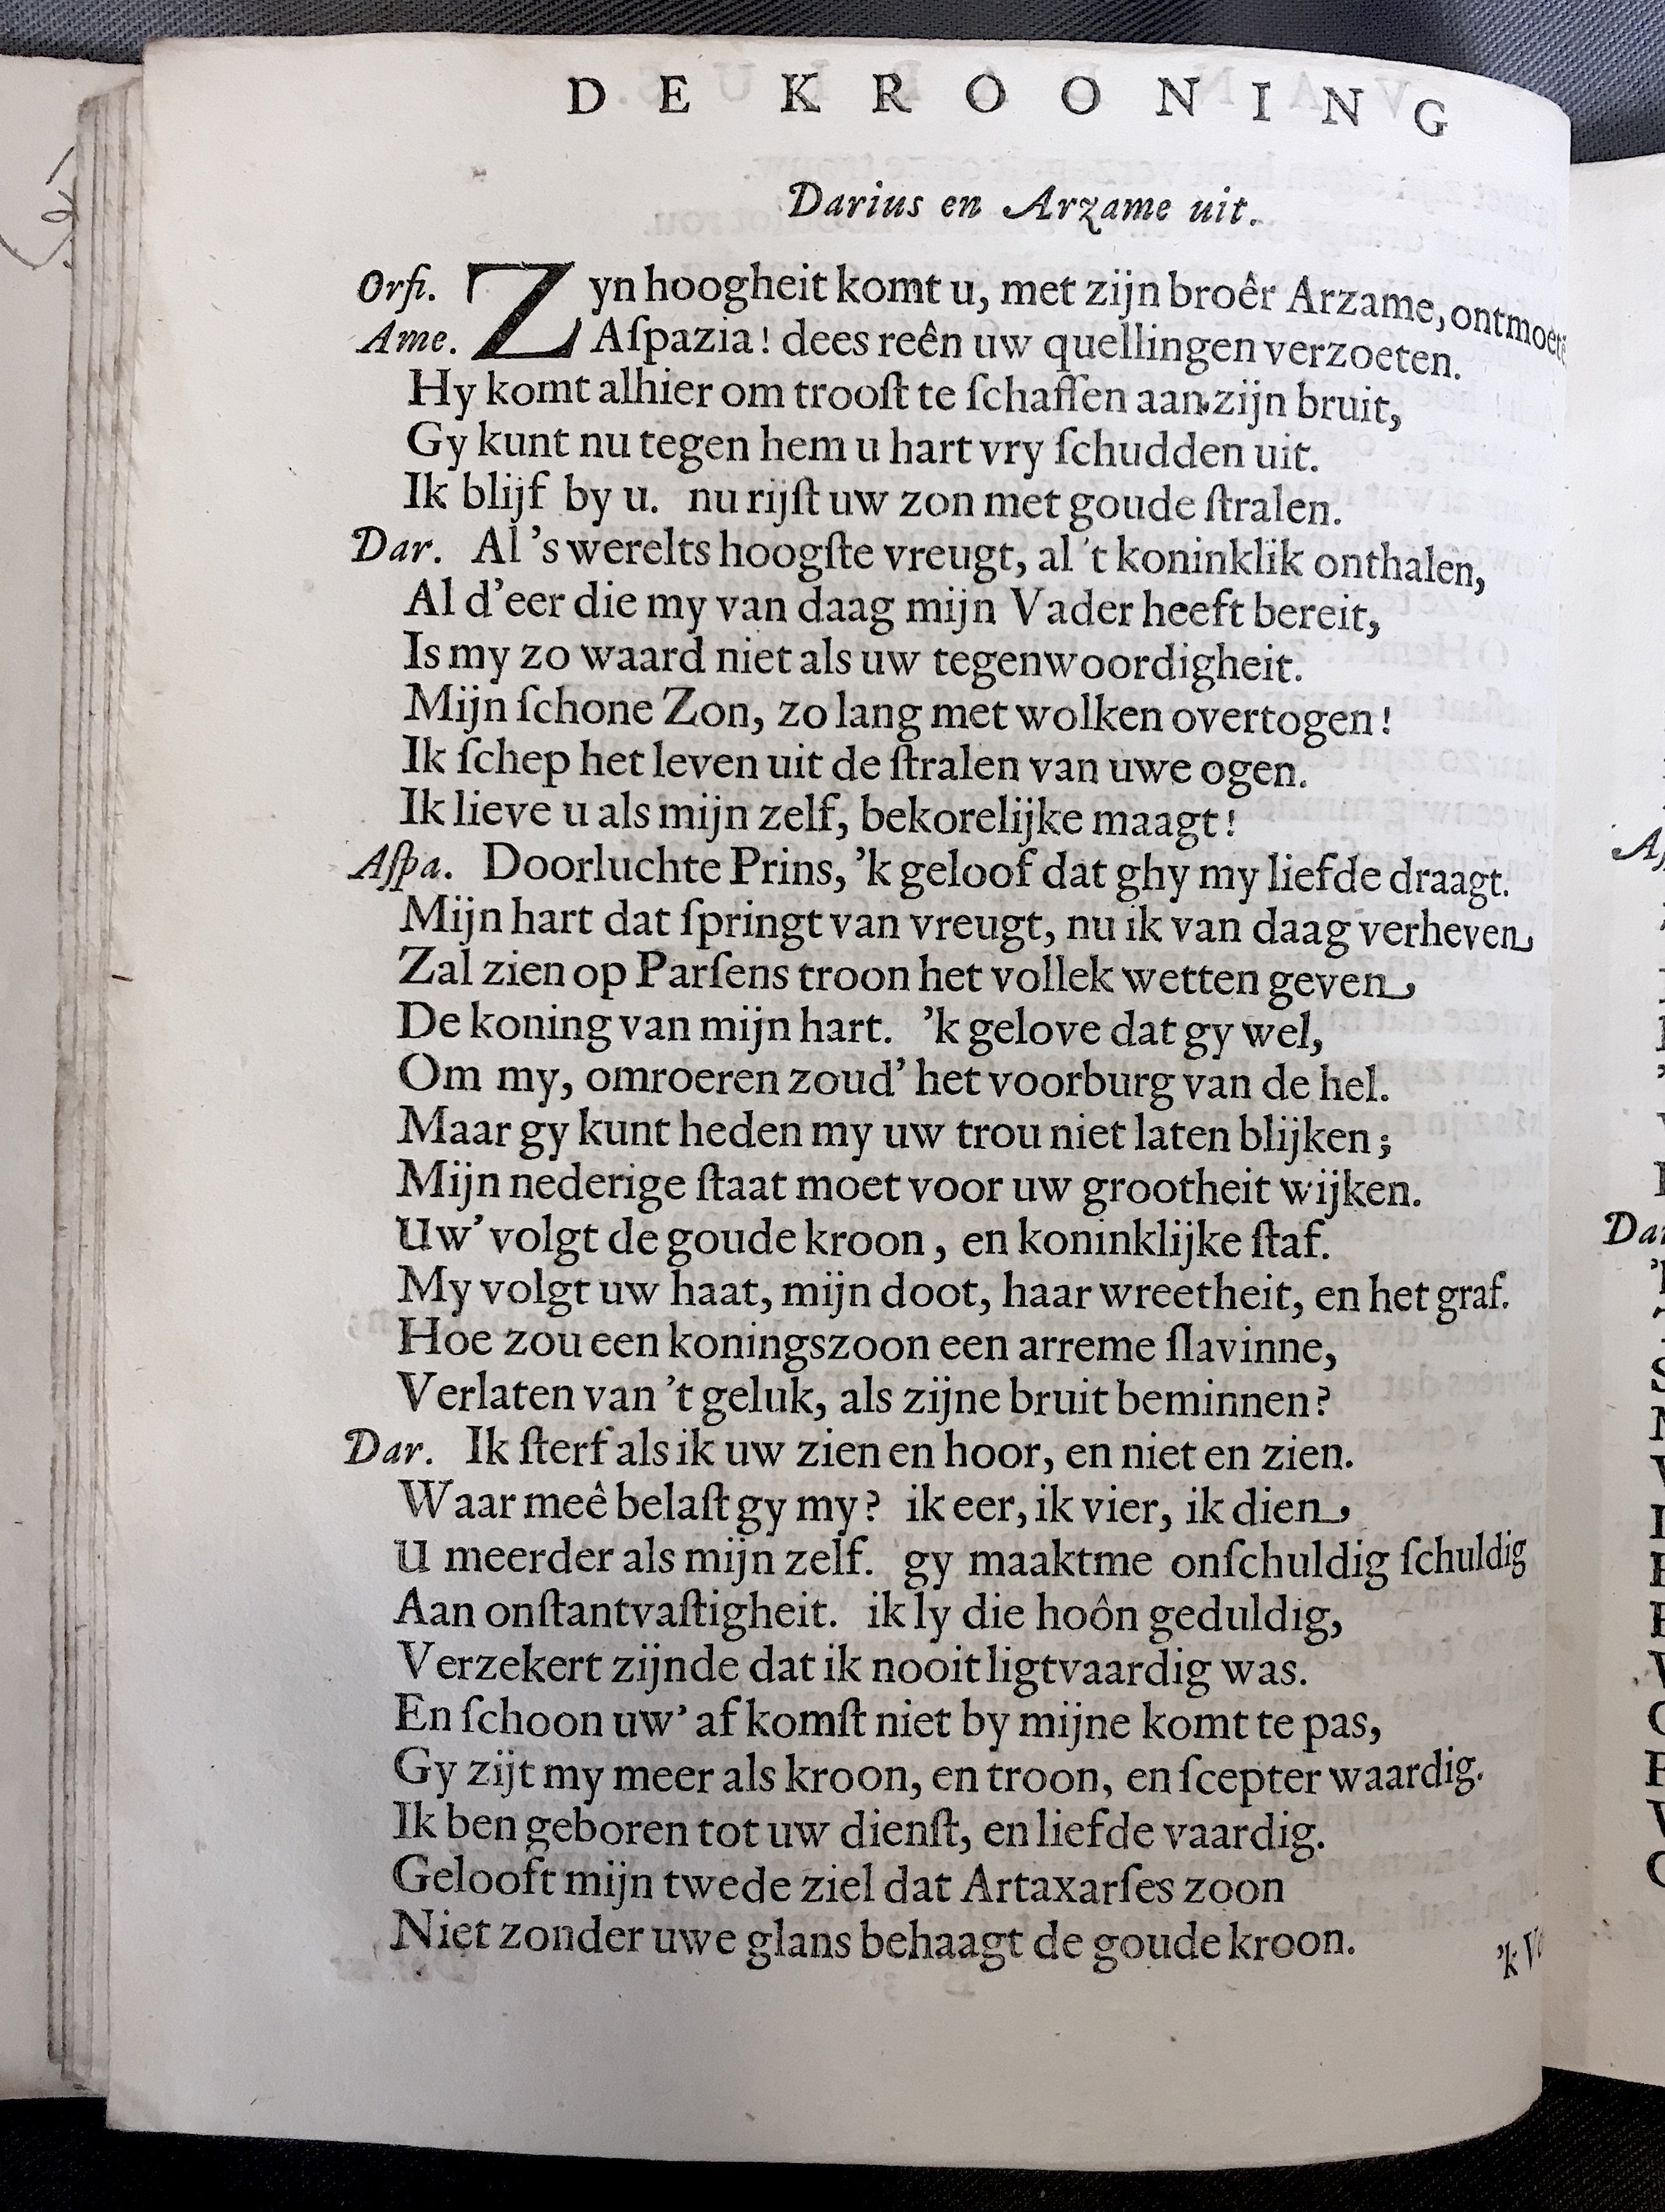 DE KROONING
Darius en Arzame uit.
Orſi. Zyn hoogheit komt u, met zijn broêr Arzame, ontmoetē
Ame. Aſpazia! dees reên uw quellingen verzoeten.
Hy komt alhier om trooſt te ſchaffen aan zijn bruit,
Gy kunt nu tegen hem u hart vry ſchudden uit.
Ik blijf by u. nu rijſt uw zon met goude ſtralen.
Dar. Al 's werelts hoogſte vreugt, al 't koninklik onthalen,
Al d'eer die my van daag mijn Vader heeft bereit,
Is my zo waard niet als uw tegenwoordigheit.
Mijn ſchone Zon, zo lang met wolken overtogen!
Ik ſchep het leven uit de ſtralen van uwe ogen.
Ik lieve u als mijn zelf, bekorelijke maagt!
Aſpa. Doorluchte Prins, 'k geloof dat ghy my liefde draagt.
Mijn hart dat ſpringt van vreugt, nu ik van daag verheven
Zal zien op Parſens troon het vollek wetten geven
De koning van mijn hart. 'k gelove dat gy wel,
Om my, omroeren zoud' het voorburg van de hel.
Maar gy kunt heden my uw trou niet laten blijken;
Mijn nederige ſtaat moet voor uw grootheit wijken.
Uw' volgt de goude kroon, en koninklijke ſtaf.
My volgt uw haat, mijn doot, haar wreetheit, en het graf.
Hoe zou een koningszoon een arreme ſlavinne,
Verlaten van 't geluk, als zijne bruit beminnen?
Dar. Ik ſterf als ik uw zien en hoor, en niet en zien.
Waar meê belaſt gy my? ik eer, ik vier, ik dien
U meerder als mijn zelf. gy maaktme onſchuldig ſchuldig
Aan onſtantvaſtigheit. ik ly die hoôn geduldig,
Verzekert zijnde dat ik nooit ligtvaardig was.
En ſchoon uw' af komſt niet by mijne komt te pas,
Gy zijt my meer als kroon, en troon, en ſcepter waardig.
Ik ben geboren tot uw dienſt, en liefde vaardig.
Gelooft mijn twede ziel dat Artaxarſes zoon
Niet zonder uwe glans behaagt de goude kroon.
'k
Dar